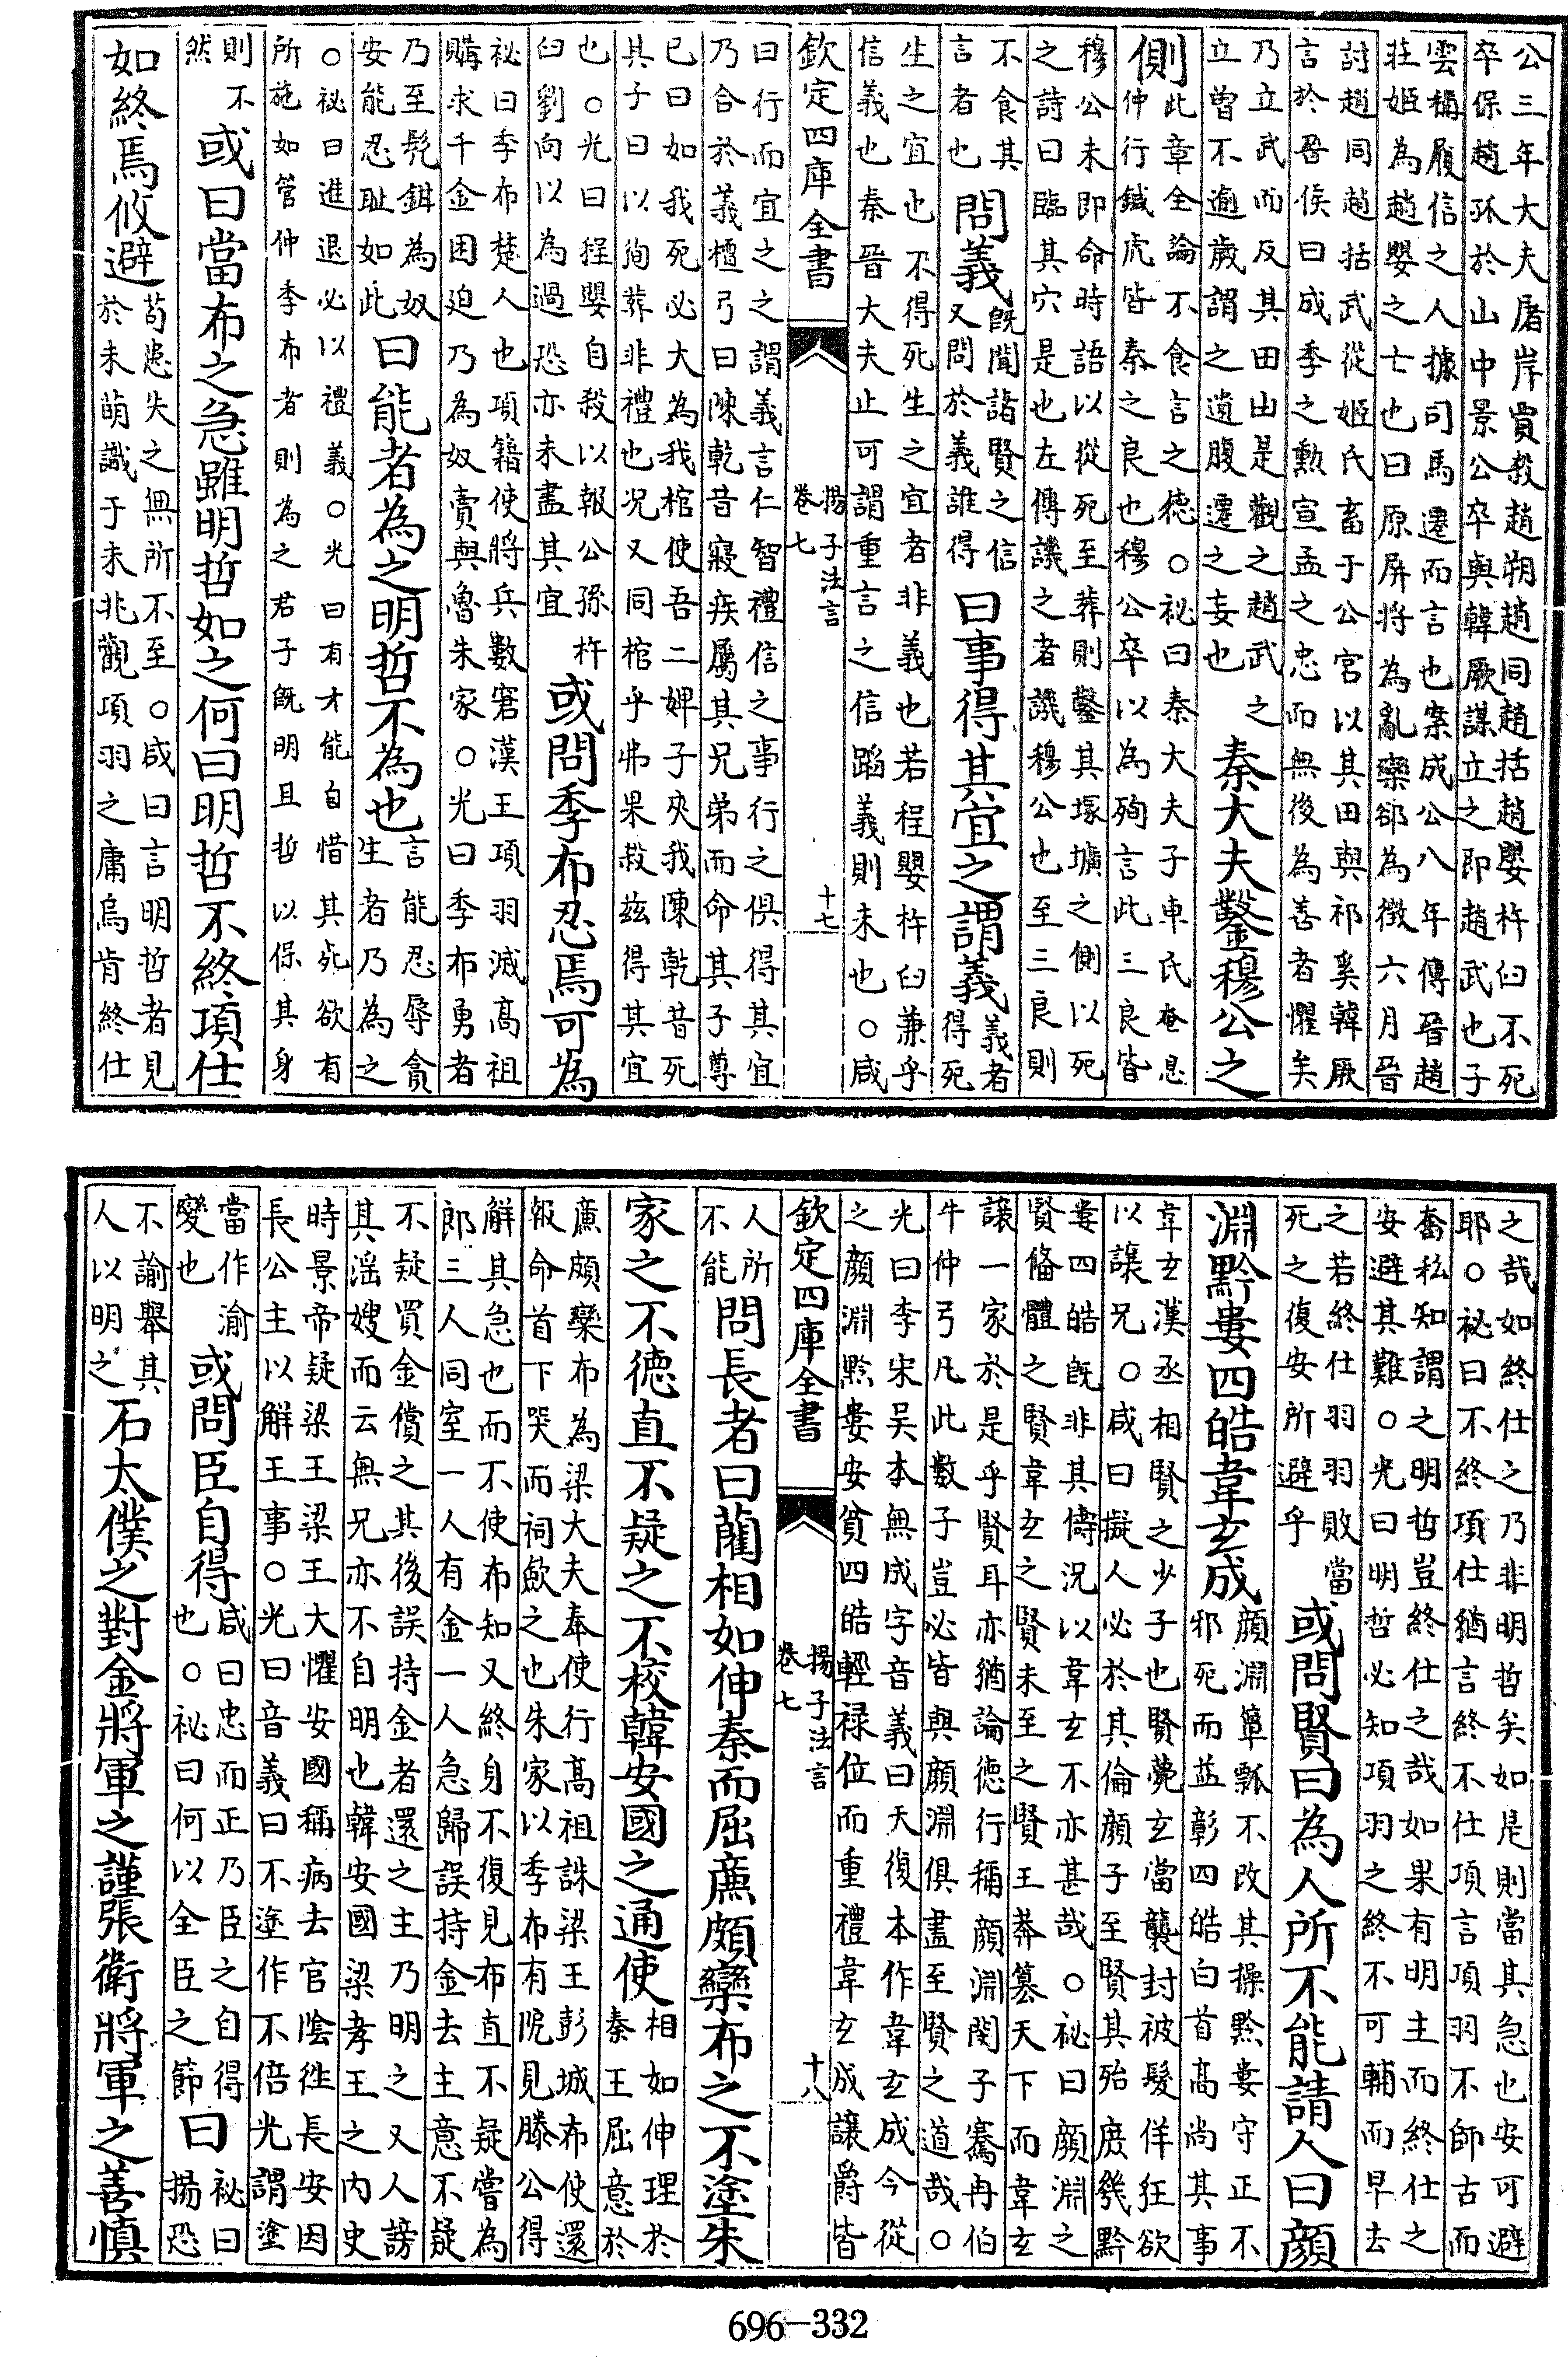 公三年大夫屠岸賈殺趙朔趙同趙括趙嬰杵臼不死
卒保趙孤於山中景公卒與韓厥謀立之即趙武也子
雲稱履信之人據司馬遷而言也案成公八年傳晉趙
莊姬為趙嬰之亡也曰原屏將為亂欒郤為徵六月晉
討趙同趙括武從姬氏畜于公宮以其田與祁奚韓厥
言於晉侯曰成季之勲宣孟之忠而無後為善者懼矣
乃立武而反其田由是觀之趙武之
立曽不逾歲謂之遺腹遷之妄也
秦大夫鑿穆公之
側
此章全論不食言之徳○祕曰秦大夫子車氏奄息
仲行鍼虎皆秦之良也穆公卒以為殉言此三良皆
穆公未即命時語以從死至葬則鑿其塚壙之側以死
之詩曰臨其穴是也左傳譏之者譏穆公也至三良則
不食其
言者也
問義
既聞諸賢之信
又問於義誰得
曰事得其宜之謂義
義者
得死
生之宜也不得死生之宜者非義也若程嬰杵臼兼乎
信義也秦晉大夫止可謂重言之信蹈義則未也○咸
欽定四庫全書
揚子法言
卷七
十七
曰行而宜之之謂義言仁智禮信之事行之俱得其宜
乃合於義檀弓曰陳乾昔寢疾屬其兄弟而命其子尊
已曰如我死必大為我棺使吾二婢子夾我陳乾昔死
其子曰以殉葬非禮也况又同棺乎弗果殺兹得其宜
也○光曰程嬰自殺以報公孫杵
臼劉向以為過恐亦未盡其宜
或問季布忍焉可為
祕曰季布楚人也項籍使將兵數窘漢王項羽滅高祖
購求千金困廹乃為奴賣與魯朱家○光曰季布勇者
乃至髠鉗為奴
安能忍耻如此
曰能者為之明哲不為也
言能忍辱貪
生者乃為之
○祕曰進退必以禮義○光曰有才能自惜其死欲有
所施如管仲季布者則為之君子既明且哲以保其身
則不
然
或曰當布之急雖明哲如之何曰明哲不終項仕
如終焉攸避
苟患失之無所不至○咸曰言明哲者見
於未萌識于未兆觀項羽之庸烏肯終仕
之哉如終仕之乃非明哲矣如是則當其急也安可避
耶○祕曰不終項仕猶言終不仕項言項羽不師古而
奮私知謂之明哲豈終仕之哉如果有明主而終仕之
安避其難○光曰明哲必知項羽之終不可輔而早去
之若終仕羽羽敗當
死之復安所避乎
或問賢曰為人所不能請人曰顔
淵黔婁四皓韋玄成
顔淵簞瓢不改其操黔婁守正不
邪死而益彰四皓白首高尚其事
韋玄漢丞相賢之少子也賢薨玄當襲封被髮佯狂欲
以讓兄○咸曰擬人必於其倫顔子至賢其殆庶幾黔
婁四皓既非其儔況以韋玄不亦甚哉○祕曰顔淵之
賢偹體之賢韋玄之賢未至之賢王莽簒天下而韋玄
讓一家於是乎賢耳亦猶論徳行稱顔淵閔子騫冉伯
牛仲弓凡此數子豈必皆與顔淵俱盡至賢之道哉○
光曰李宋吴本無成字音義曰天復本作韋玄成今從
之顔淵黔婁安貧四皓輕禄位而重禮韋玄成讓爵皆
欽定四庫全書
揚子法言
卷七
十八
人所
不能
問長者曰藺相如伸秦而屈廉頗欒布之不塗朱
家之不德直不疑之不校韓安國之通使
相如伸理於
秦王屈意於
廉頗欒布為梁大夫奉使行髙祖誅梁王彭城布使還
報命首下哭而祠歛之也朱家以季布有阨見滕公得
解其急也而不使布知又終身不復見布直不疑嘗為
郎三人同室一人有金一人急歸誤持金去主意不疑
不疑買金償之其後誤持金者還之主乃明之又人謗
其滛嫂而云無兄亦不自明也韓安國梁孝王之内史
時景帝疑梁王梁王大懼安國稱病去官隂徃長安因
長公主以解王事○光曰音義曰不塗作不倍光謂塗
當作渝
變也
或問臣自得
咸曰忠而正乃臣之自得
也○祕曰何以全臣之節
曰
祕曰
揚恐
不諭舉其
人以明之
石太僕之對金將軍之謹張衛將軍之善慎
696-332